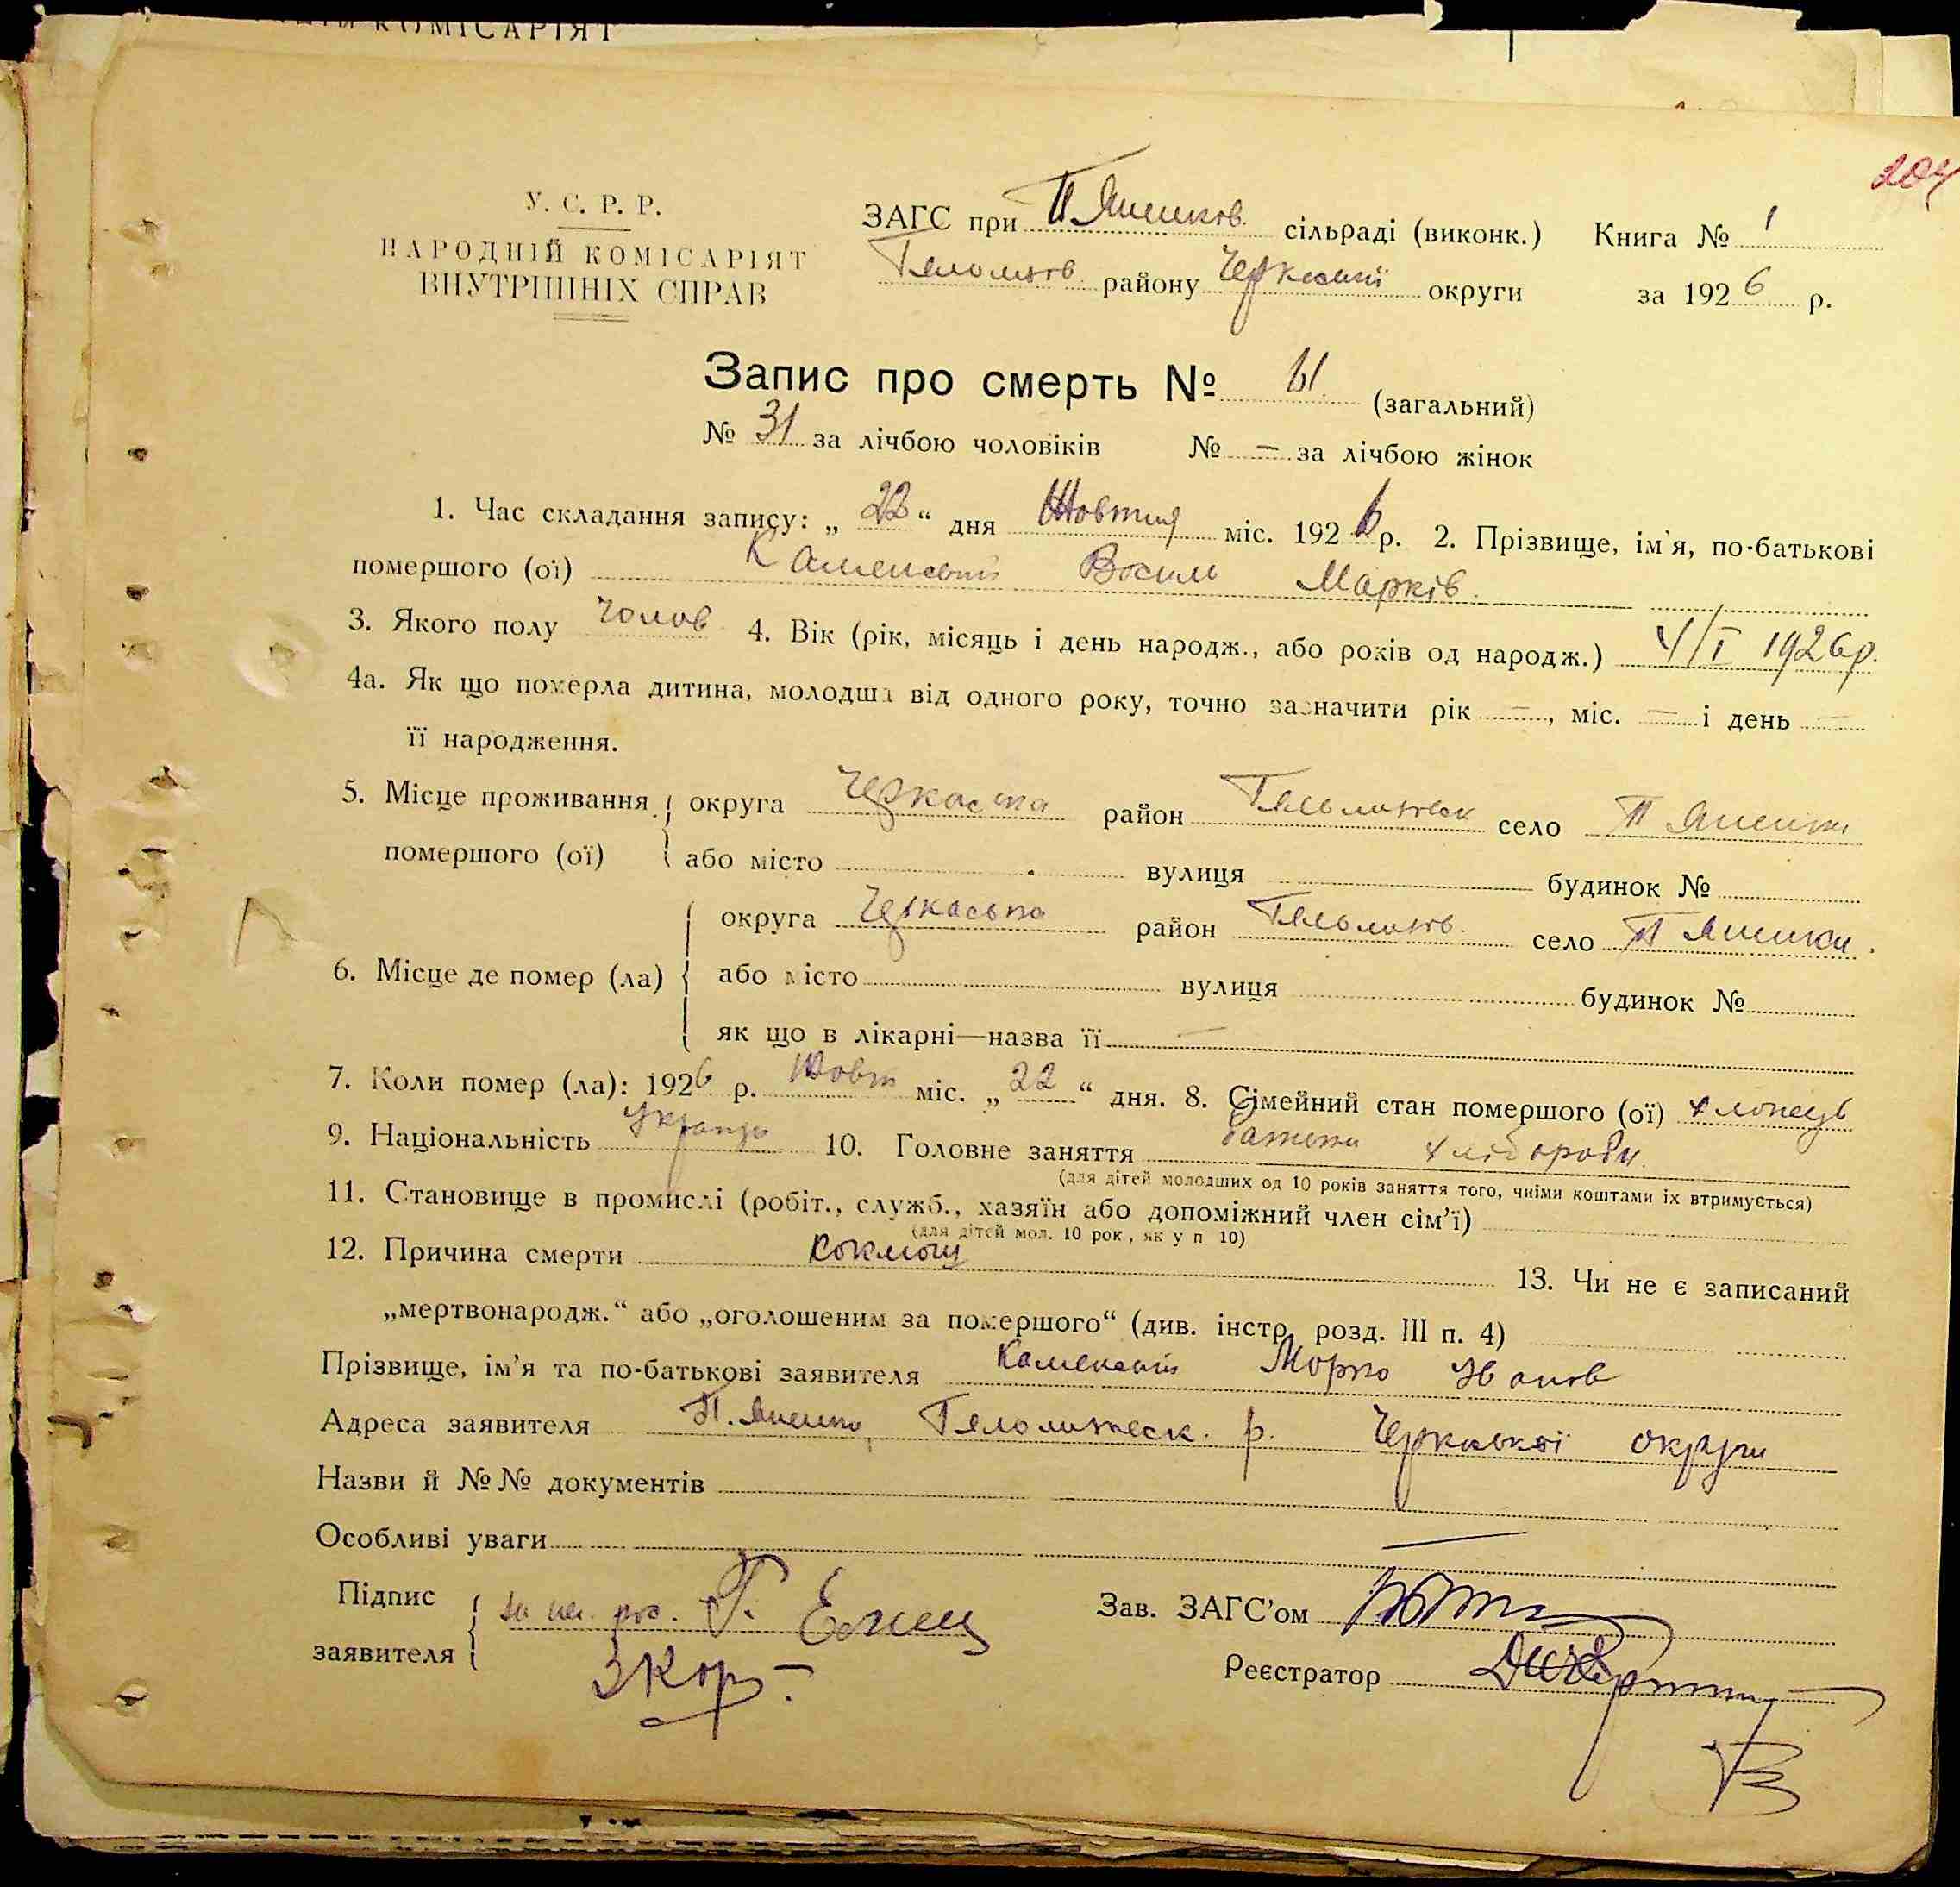 КОМІСАРІЯТ
204
У. С. Р. Р.
НАРОДНІЙ КОМІСАРІЯТ
ВНУТРІШНІХ СПРАВ
ЗАГС при сільраді (виконк.) Книга № 1
району округи за 1926 р.
Запис про смерть № 61 (загальний)
№ 31 за лічбою чоловіків № — за лічбою жінок
1. Час складання запису: „ 22 “ дня Жовтня міс. 1926 р. 2. Прізвище, ім'я, по-батькові
помершого (ої) Каменський Василь Марків.
3. Якого полу Чолов 4. Вік (рік, місяць і день народж., або років од народж.) 4/I 1926р.
4а. Як що померла дитина, молодша від одного року, точно зазначити рік —, міс. — і день —
її народження.
5. Місце проживання помершого (ої) округа Черкаська район село
або місто вулиця будинок №
6. Місце де помер (ла) округа Черкаська район село
або місто вулиця будинок №
як що в лікарні—назва її —
7. Коли помер (ла): 1926 р. Жовт міс. „ 22 “ дня. 8. Сімейний стан помершого (ої) хлопець
9. Національність 10. Головне заняття хлібороби.
(для дітей молодших од 10 років заняття того, чиїми коштами їх втримується)
11. Становище в промислі (робіт., служб., хазяїн або допоміжний член сім’ї)
(для дітей мол. 10 рок, як у п 10)
12. Причина смерти Коклюш 13. Чи не є записаний
„мертвонародж.“ або „оголошеним за помершого“ (див. інстр. розд. III п. 4)
Прізвище, ім’я та по-батькові заявителя Каменський Марко Іванів
Адреса заявителя р. Черкаської округи
Назви й №№ документів
Особливі уваги —
Підпис заявителя Г.
Зав. ЗАГС’ом
Реєстратор